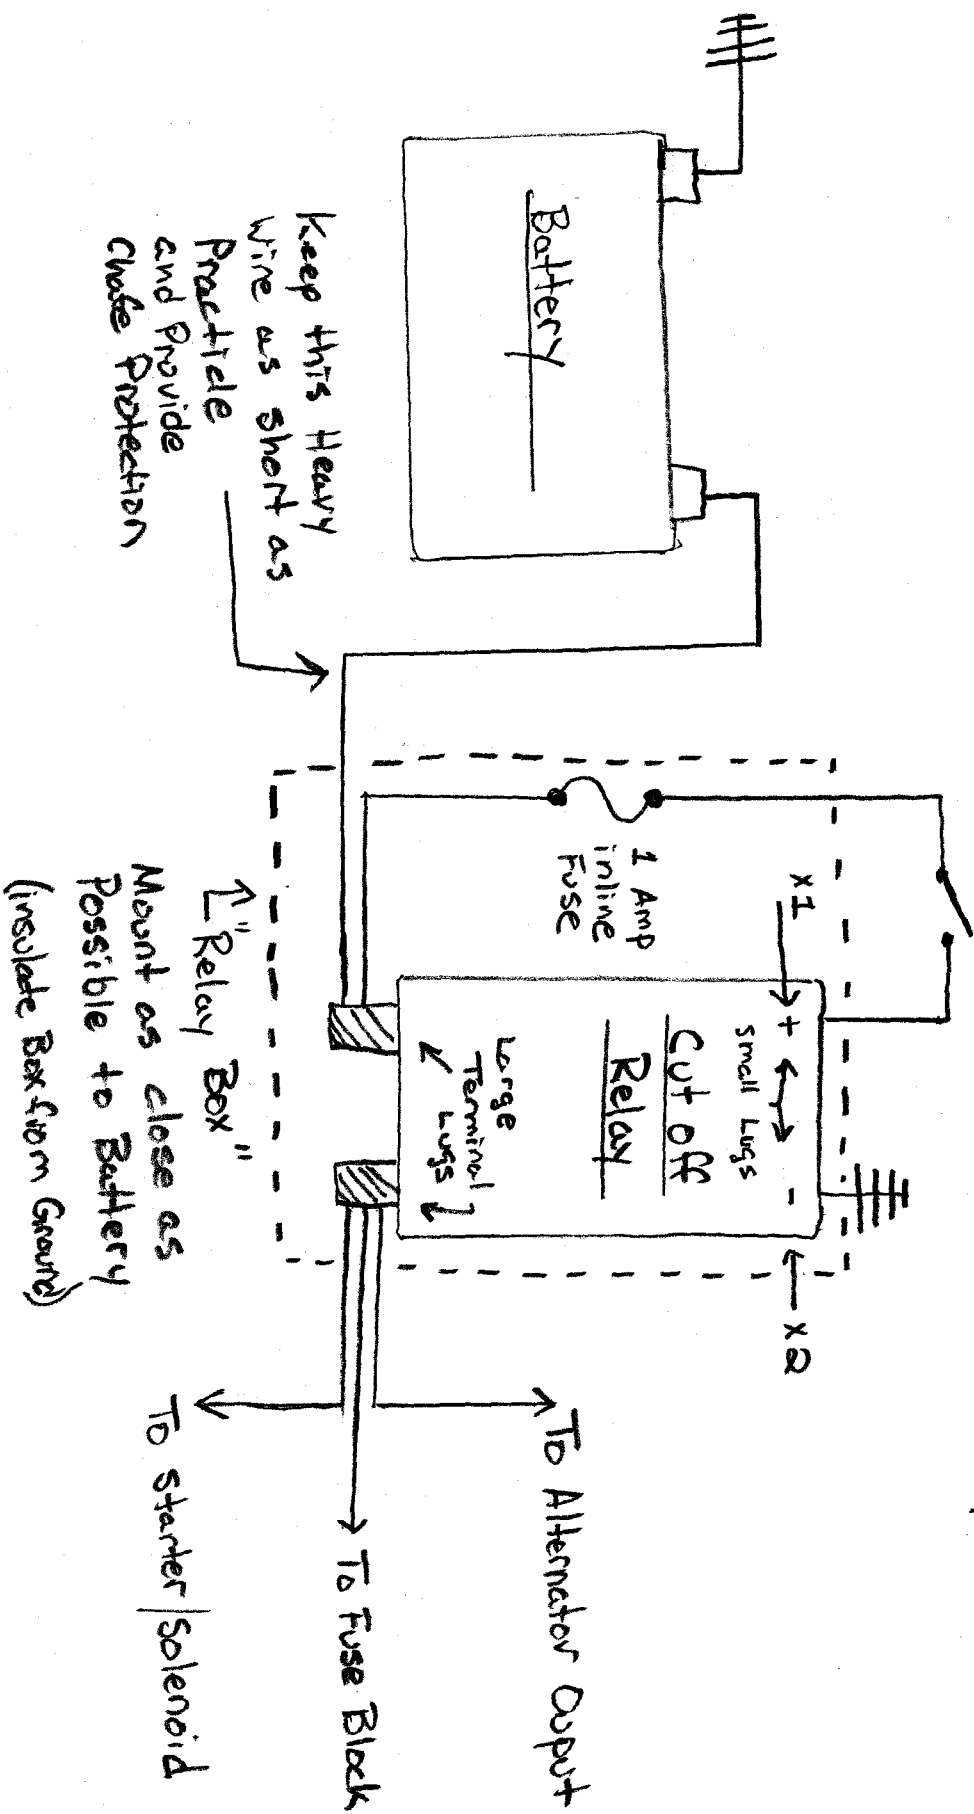 Battery
Keep this Heavy
wire as short as
Practicle
and Provide
Chafe Protection
1 Amp
inline
Fuse
x1
+
-
small Lugs
Cut off
Relay
Large
Terminal
Lugs
x2
"Relay Box"
Mount as close as
Possible to Battery
(insulate Box from Ground)
To Alternator Ouput
To Fuse Block
To starter/Solenoid